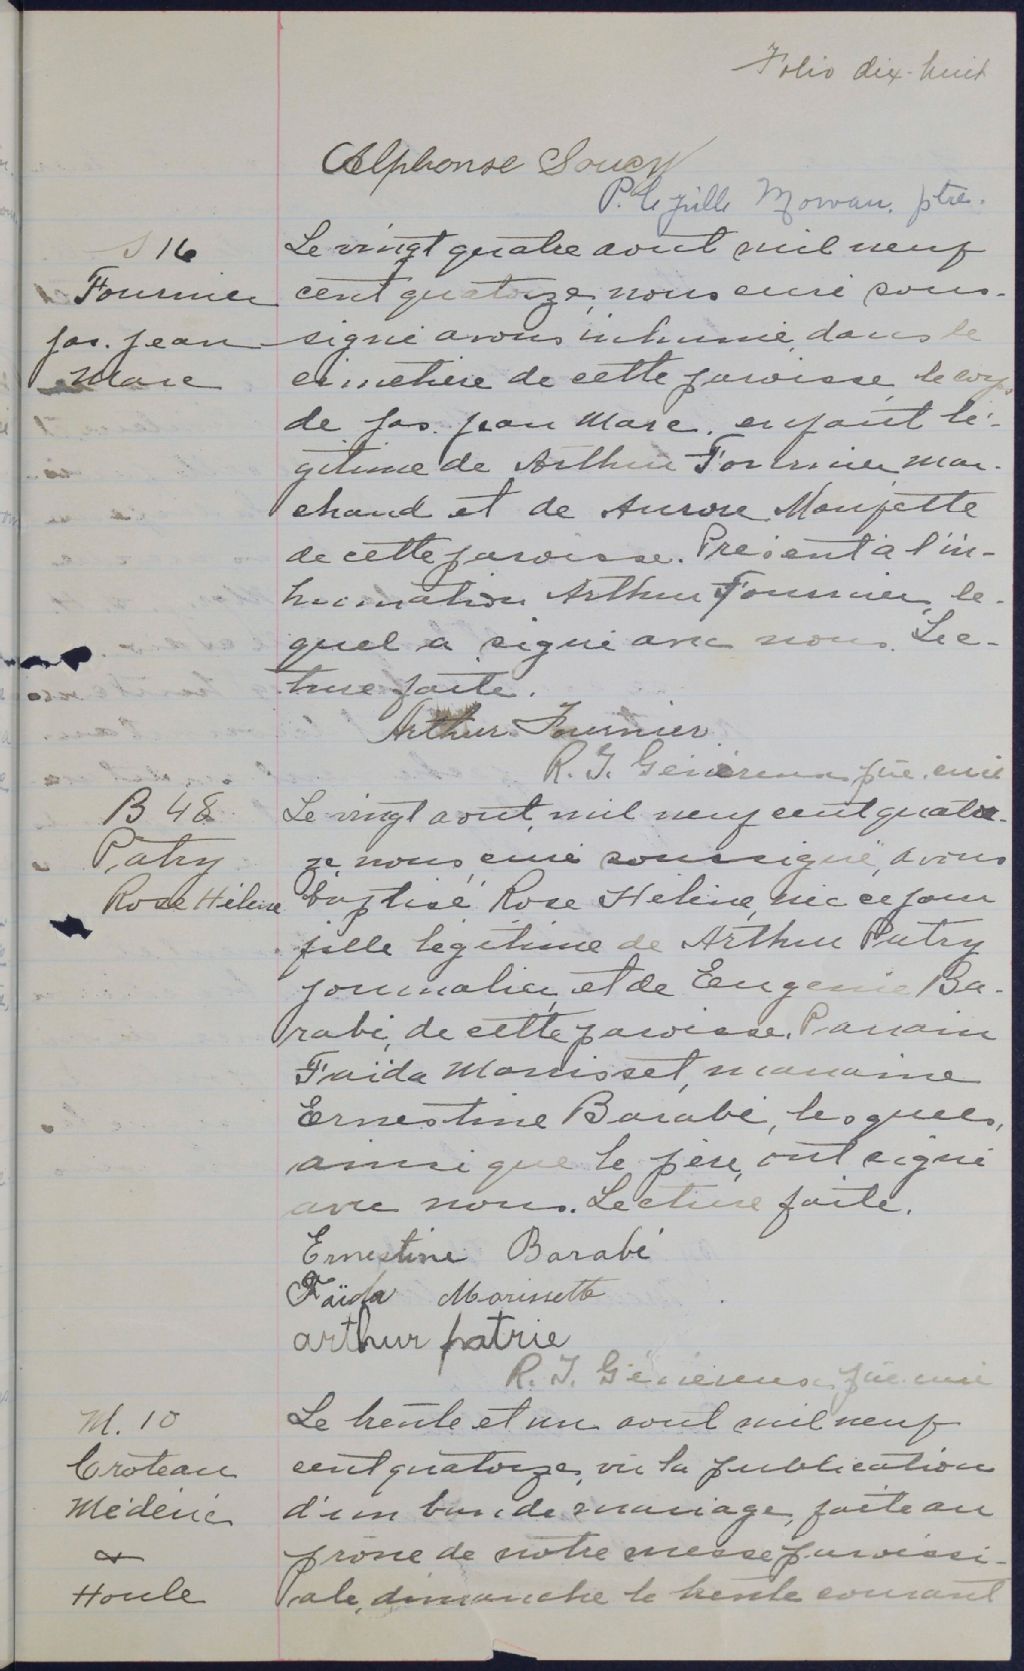 Folio dix-huit
Alphonse Soucy
P. ptre.
S 16
Fournier
Jos. Jean
Marc
Le vingt quatre aout mil neuf
cent quatorze, nous curé sous-
signé avons inhumé, dans le
cimetière de cette paroisse, le corps
de Jos. Jean Marc, enfant lé-
gitime de Arthur Fournier mar-
chand et de Aurore
de cette paroisse. Présent à l'in-
humation Arthur Fournier, le-
quel a signé avec nous. Lec-
ture faite.
Arthur Fournier
R. J. Généreux ptre. curé
B 48
Patry
Rose Hélène
Le vingt aout, mil neuf cent quator-
ze, nous, curé soussigné, avons
baptisé Rose Hélène, née ce jour
fille légitime de Arthur Patry
journalier, et de Eugenie Ba-
rabé, de cette paroisse. Parrain
Faïda Morisset, marraine
Ernestine Barabé, lesquels,
ainsi que le père, ont signé
avec nous. Lecture faite.
Ernestine Barabé
Faïda Morissette
arthur patrie
R. J. Généreux ptre. curé
M. 10
Croteau
Médéric
&
Houle
Le trente et un aout mil neuf
cent quatorze, vu la publication
d'un ban de mariage, faite au
prône de notre messe paroissi-
ale, dimanche le trente courant